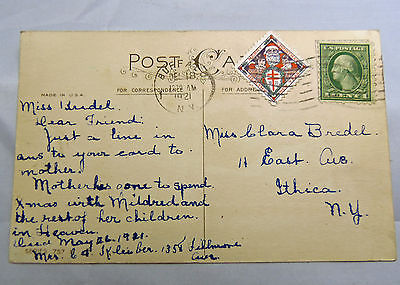 POST CARD
FOR CORRESPONDENCE
FOR ADDRESS
MADE IN U.S.A.
1921
N.Y.
U.S. POSTAGE
Miss Bredel.
Dear Friend:
Just a line in
ans to your card to
mother.
Mother has gone to spend
X-mas with Mildred and
the rest of her children
in Heaven.
Died May 26, 1921.
Mrs. 1358 Fillmore
Ave.
Miss Clara Bredel
11 East Ave.
Ithica
N.Y.